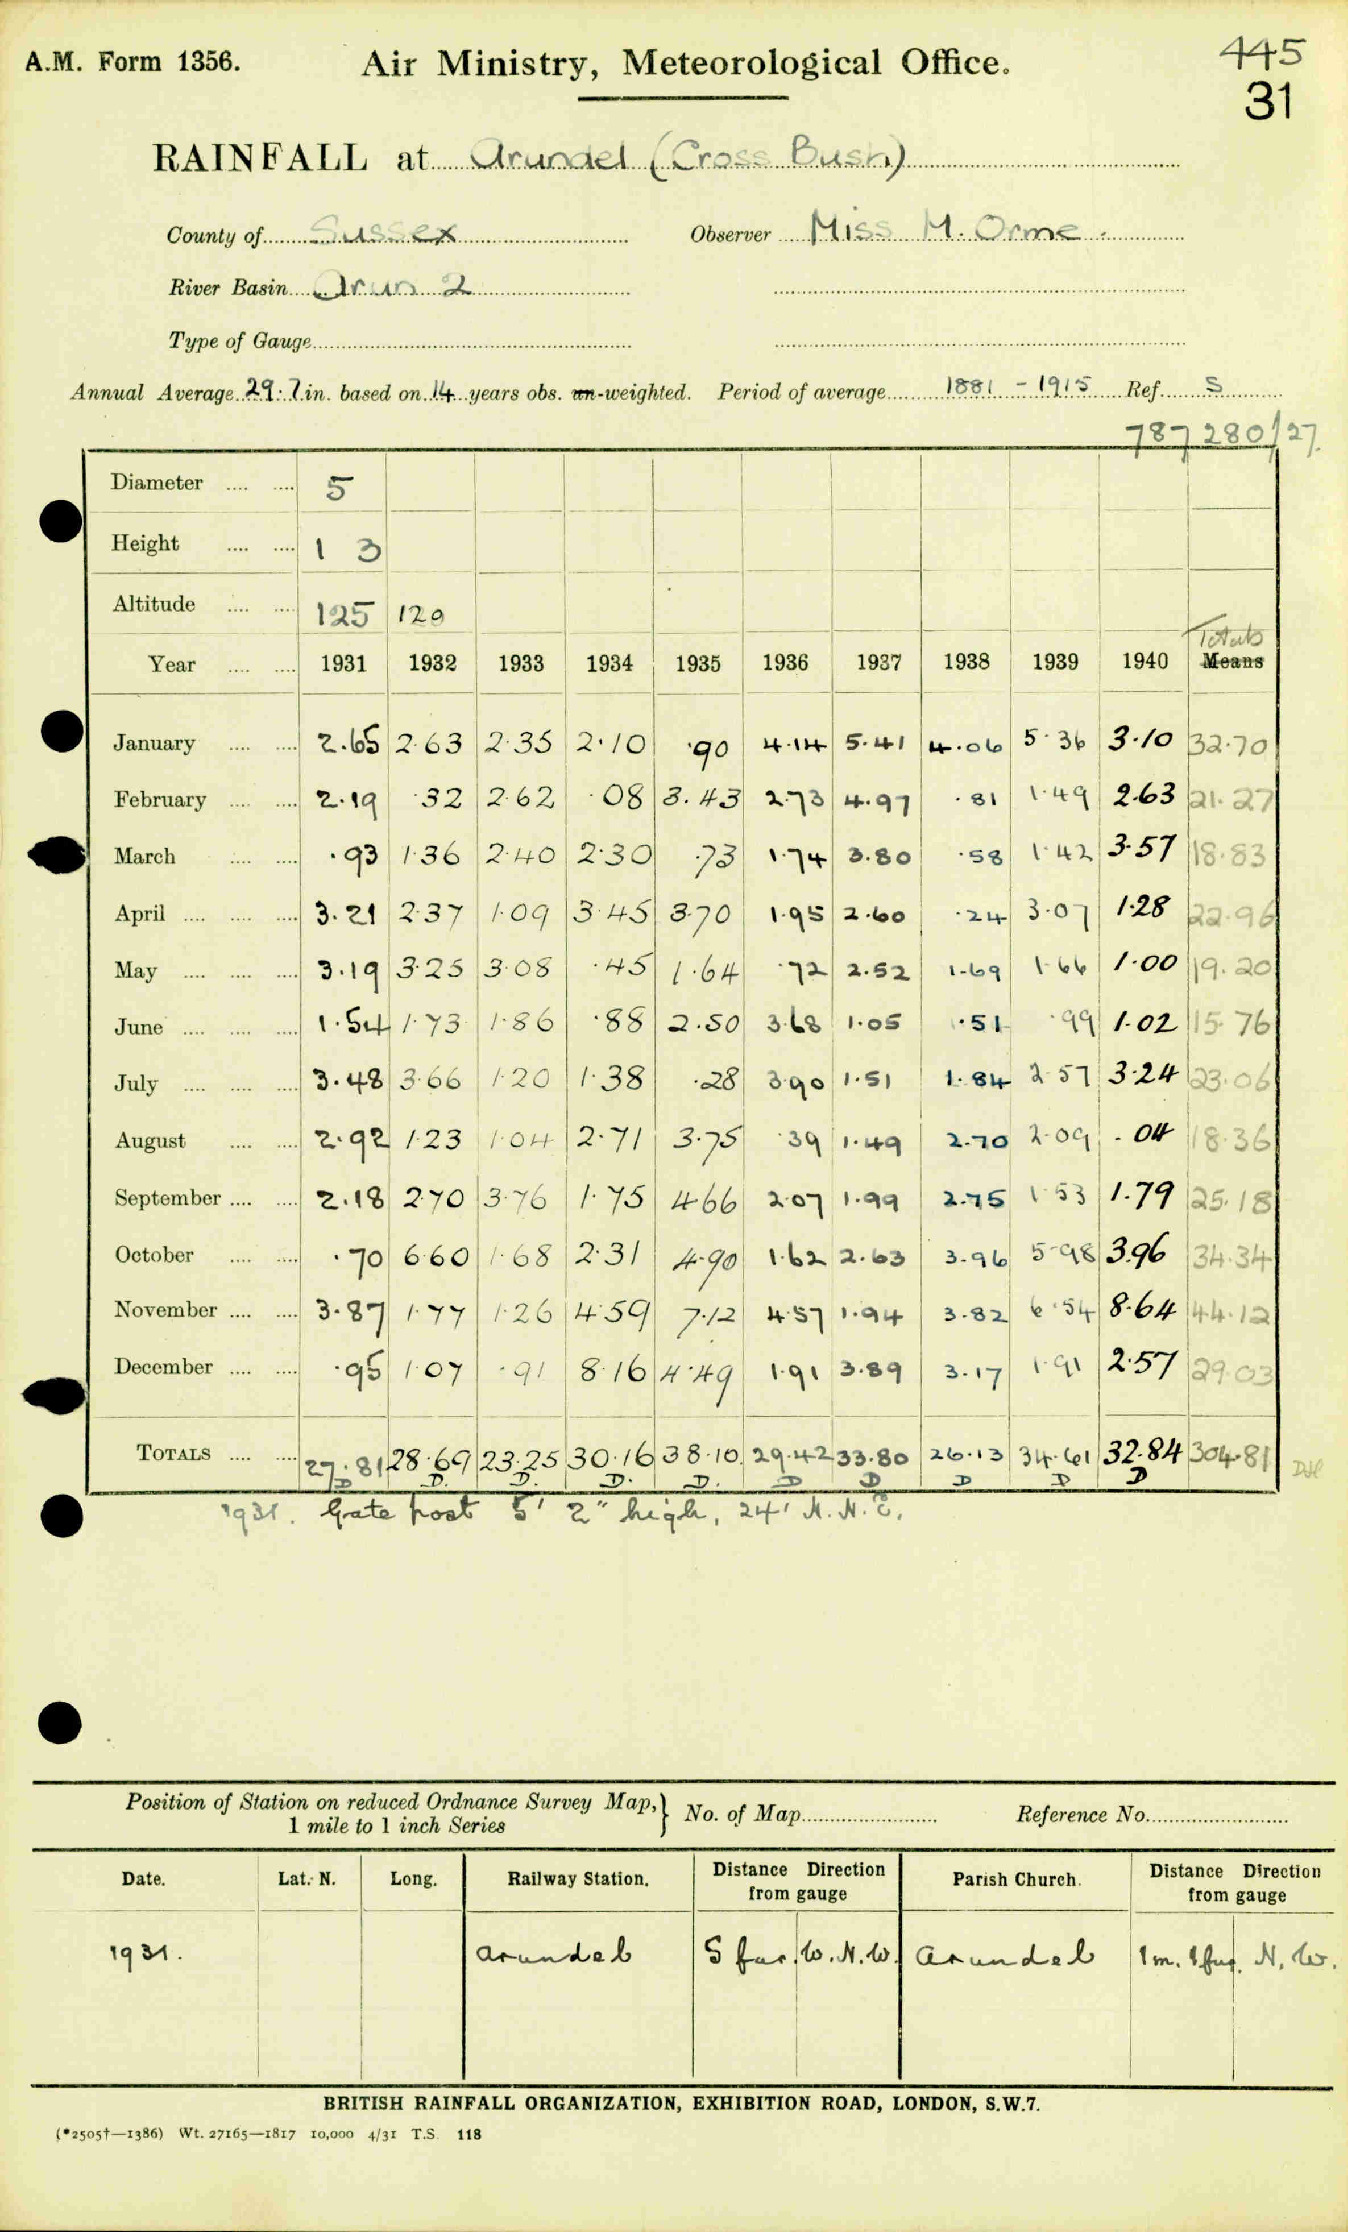 A.M. Form 1356. Air Ministry, Meteorological Office. 445
31
RAINFALL at Arundel (Cross Bush)
County of Sussex Observer Miss M. Orme.
River Basin Arun 2
Type of Gauge
Annual Average 29.7 in. based on 14 years obs. un-weighted. Period of average 1881 - 1915 Ref. S
787 280/27.
Diameter 5
Height 1 3
Altitude 125 120
Totals
Year 1931 1932 1933 1934 1935 1936 1937 1938 1939 1940 Means
January 2.65 2.63 2.35 2.10 .90 4.14 5.41 4.06 5.36 3.10 32.70
February 2.19 .32 2.62 .08 3.43 2.73 4.97 .81 1.49 2.63 21.27
March .93 1.36 2.40 2.30 .73 1.74 3.80 .58 1.42 3.57 18.83
April 3.21 2.37 1.09 3.45 3.70 1.95 2.60 .24 3.07 1.28 22.96
May 3.19 3.25 3.08 .45 1.64 .72 2.52 1.69 1.66 1.00 19.20
June 1.54 1.73 1.86 .88 2.50 3.68 1.05 .51 .99 1.02 15.76
July 3.48 3.66 1.20 1.38 .28 3.90 1.51 1.84 2.57 3.24 23.06
August 2.92 1.23 1.04 2.71 3.75 .39 1.49 2.70 2.09 .04 18.36
September 2.18 2.70 3.76 1.75 4.66 2.07 1.99 2.75 1.53 1.79 25.18
October .70 6.60 1.68 2.31 4.90 1.62 2.63 3.96 5.98 3.96 34.34
November 3.87 1.77 1.26 4.59 7.12 4.57 1.94 3.82 6.54 8.64 44.12
December .95 1.07 .91 8.16 4.49 1.91 3.89 3.17 1.91 2.57 29.03
TOTALS 27.81 28.69 23.25 30.16 38.10 29.42 33.80 26.13 34.61 32.84 304.81
D D. D. D. D. D D D D D
1931. Gate post 5' 2" high, 24' N.N.E.
Position of Station on reduced Ordnance Survey Map, } No. of Map Reference No.
1 mile to 1 inch Series
Date. Lat. N. Long. Railway Station. Distance Direction from gauge Parish Church. Distance Direction from gauge
1931. Arundel 5 fur. W.N.W. Arundel 1 m. 1 fur. N.W.
BRITISH RAINFALL ORGANIZATION, EXHIBITION ROAD, LONDON, S.W.7.
(*2505†—1386) Wt. 27165—1817 10,000 4/31 T.S. 118